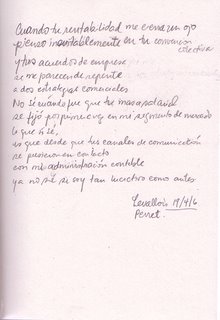 Cuando tu rentabilidad me cierra un ojo
pienso inevitablemente en tu convenio
colectivo
y tus acuerdos de empresa
se me parecen de repente
a dos estrategias comerciales
No sé cuando fue que tu masa salarial
se fijó por primera vez en mi segmento de mercado
lo que sí sé,
es que desde que tus canales de comunicación
se pusieron en contacto
con mi administración contable
ya no sé si soy tan lucrativo como antes.
Levallois 19/4/6.
Perret.